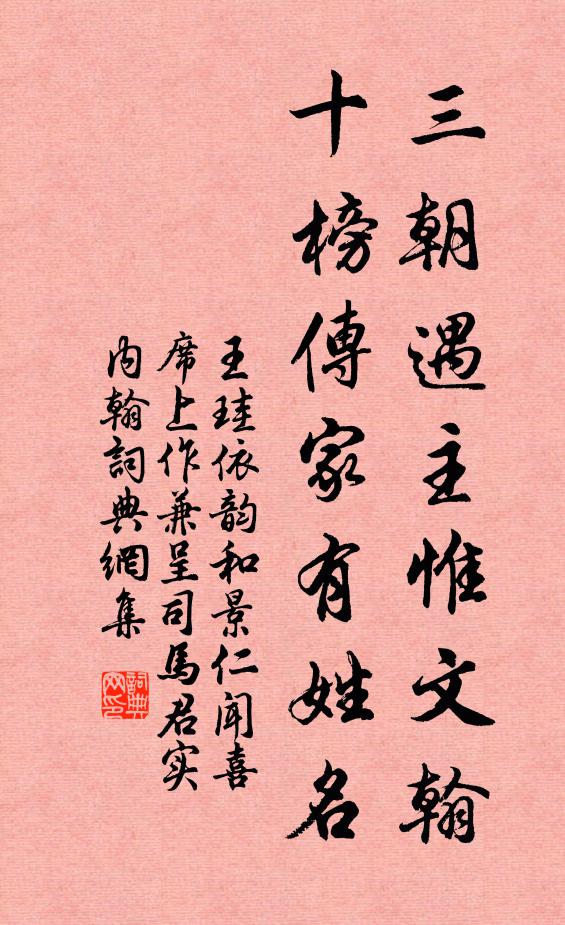 三朝遇主惟文翰
十榜傳家有姓名
王珪依韵和景仁闻喜
席上作兼呈司馬君实
内翰詞典網集
詞典网印